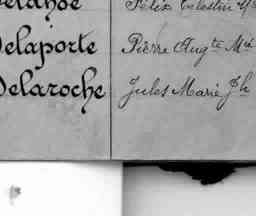 Félix Célestin
Delaporte Pierre Aug.te M.ie
Delaroche Jules Marie J.h